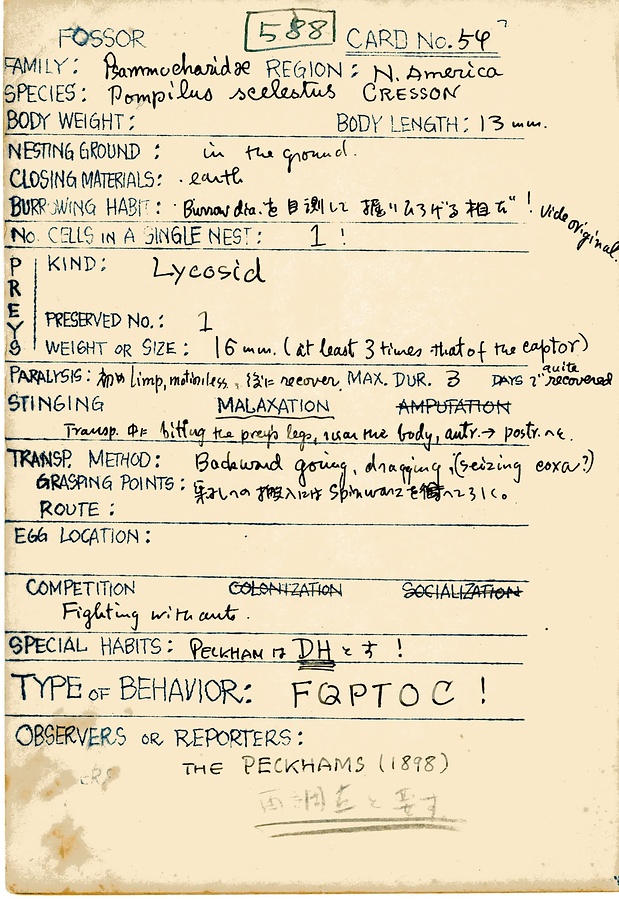 FOSSOR 588 CARD No. 54 ?
FAMILY: Psammocharidae REGION: N. America
SPECIES: Pompilus scelestus CRESSON
BODY WEIGHT: BODY LENGTH: 13 mm.
NESTING GROUND: in the ground.
CLOSING MATERIALS: earth
BURROWING HABIT: Burrow dia. を目測して掘りひろげる相だ! Vide original.
No. CELLS IN A SINGLE NEST: 1!
PREYS
KIND: Lycosid
PRESERVED No.: 1
WEIGHT OR SIZE: 16 mm. (at least 3 times that of the captor)
PARALYSIS: 初め limp, motionless, 後に recover, MAX. DUR. 3 DAYS で quite recovered
STINGING MALAXATION AMPUTATION
Transp. 中に biting the prey's legs, near the body, antr. → postr. へ.
TRANSP. METHOD: Backward going, dragging, (seizing coxa?)
GRASPING POINTS: 巣の搬入には Spinnarz を
ROUTE:
EGG LOCATION:
COMPETITION COLONIZATION SOCIALIZATION
Fighting with ants.
SPECIAL HABITS: PECKHAM は DH とす!
TYPE OF BEHAVIOR: FQPTOC!
OBSERVERS OR REPORTERS:
THE PECKHAMS (1898)
再調査を要す.